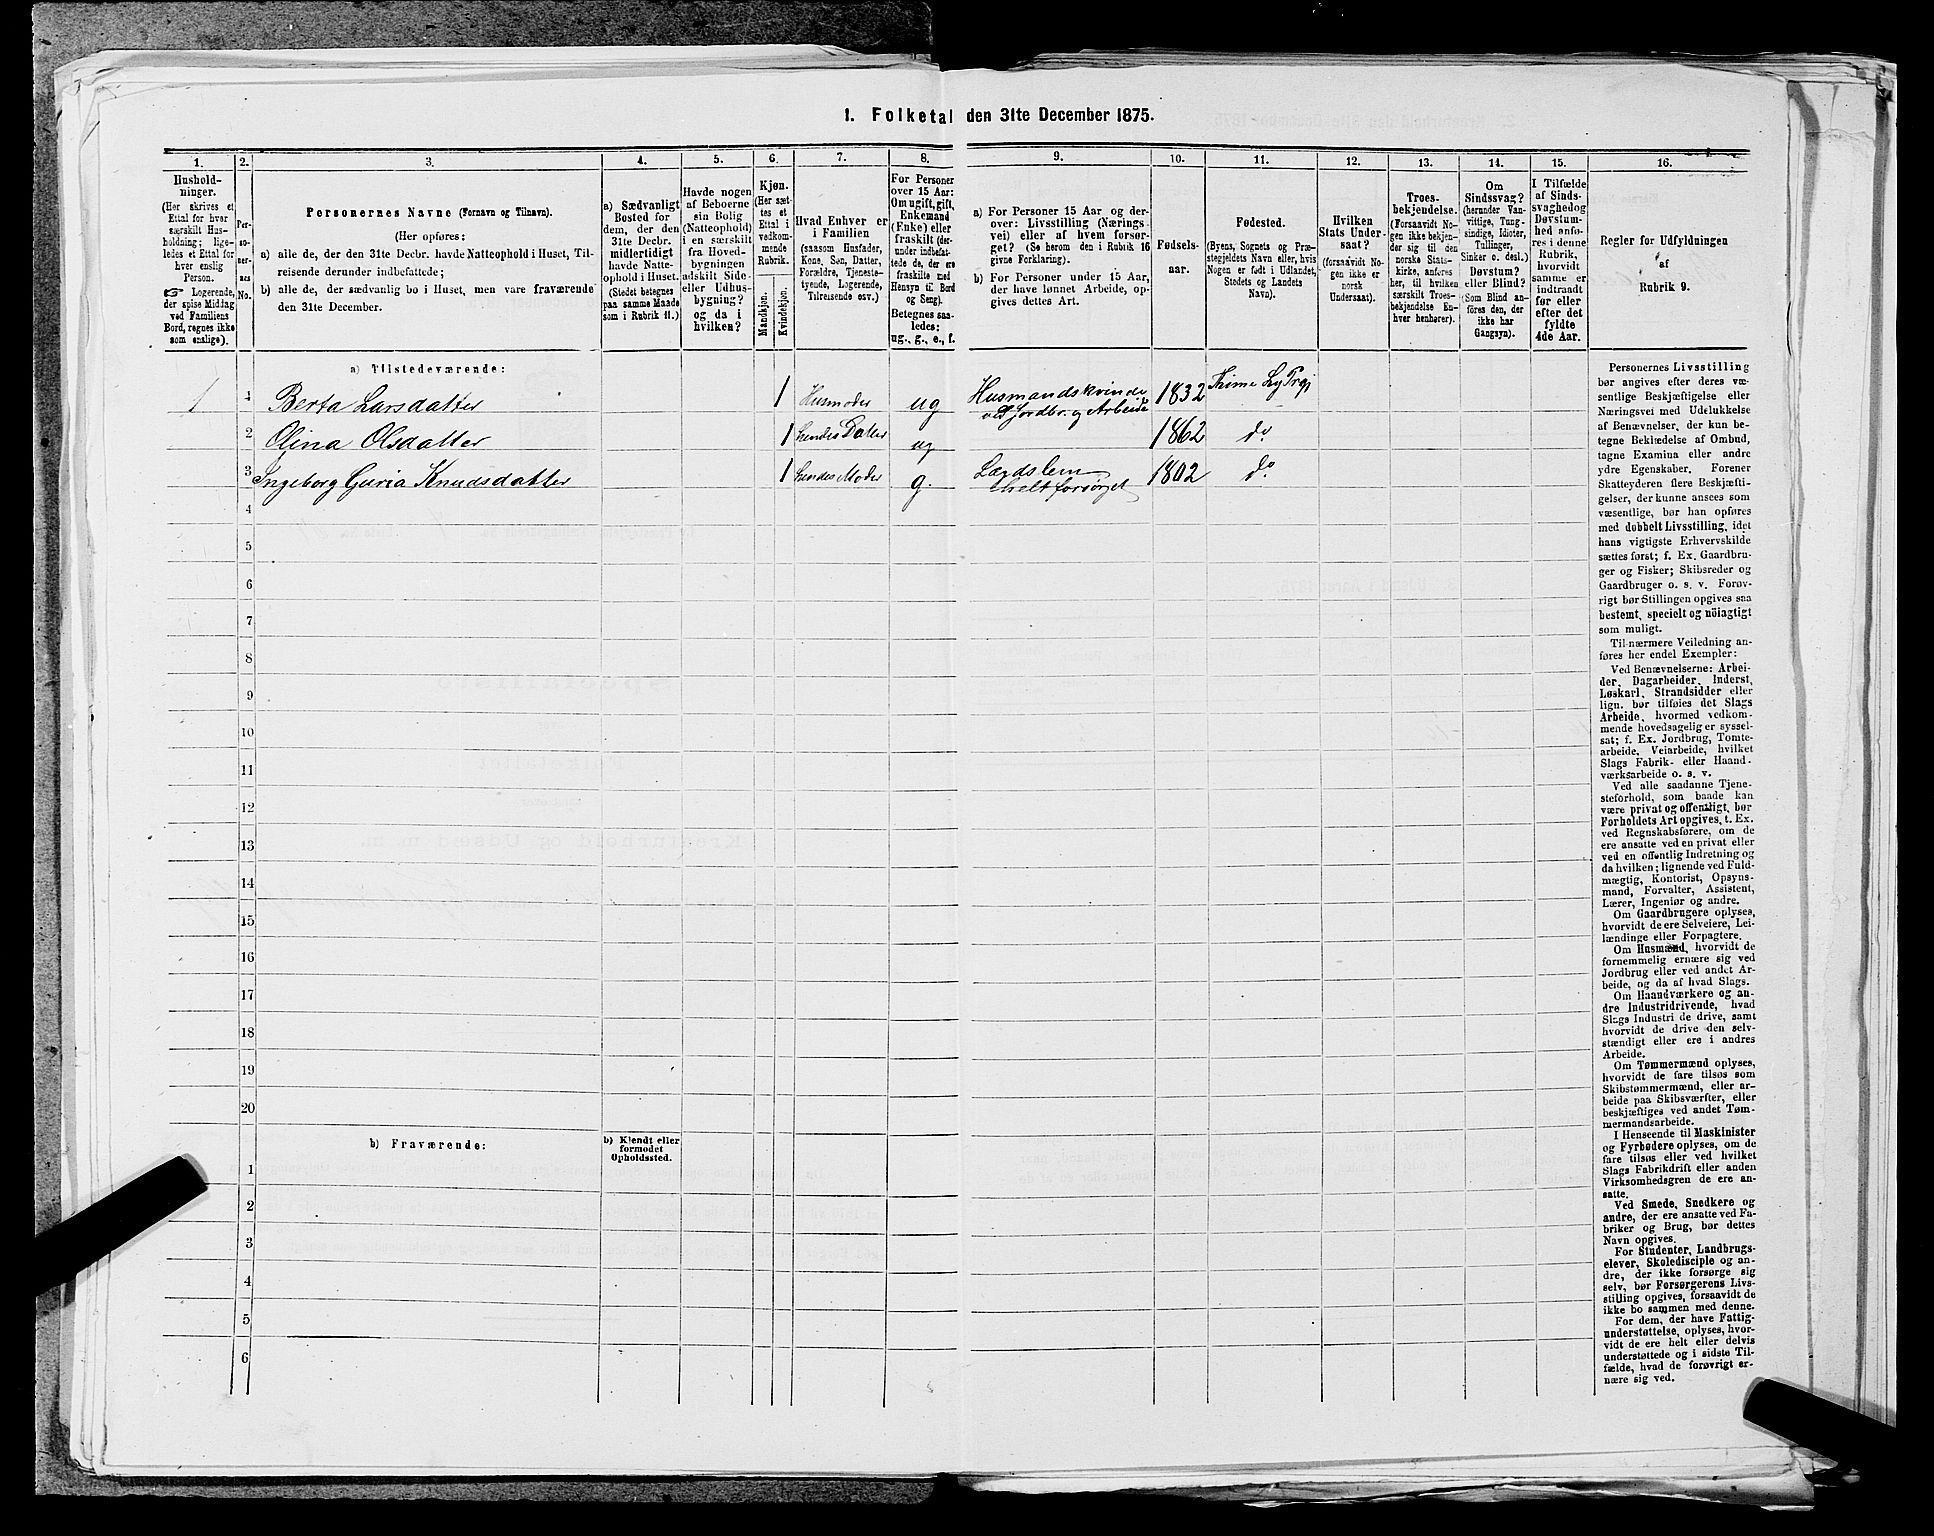 1. Folketal den 31te December 1875.
1. 2. 3. 4. 5. 6. 7. 8. 9. 10. 11. 12. 13. 14. 15. 16.
Hushold-
ninger.
(Her skrives et
Ettal for hver
særskilt Hus-
holdning; lige-
ledes et Ettal for
hver enslig
Person.
☞ Logerende,
der spise Middag
ved Familiens
Bord, regnes ikke
som enslige).
Per-
so-
ner-
nes
No.
Personernes Navne (Fornavn og Tilnavn).
(Her opføres:
a) alle de, der den 31te Decbr. havde Natteophold i Huset, Til-
reisende derunder indbefattede;
b) alle de, der sædvanlig bo i Huset, men vare fraværende
den 31te December.
a) Sædvanligt
Bosted for
dem, der den
31te Decbr.
midlertidigt
havde Natte-
ophold i Huset.
(Stedet betegnes
paa samme Maade
som i Rubrik 11.)
Havde nogen
af Beboerne
sin Bolig
(Natteophold)
i en særskilt
fra Hoved-
bygningen
adskilt Side-
eller Udhus-
bygning?
og da i
hvilken?
Kjøn.
(Her sæt-
tes et
Ettal i
vedkom-
mende
Rubrik.
Mandkjøn.
Kvindekjøn.
Hvad Enhver er
i Familien
(saasom Husfader,
Kone, Søn, Datter,
Forældre, Tjeneste-
tyende, Logerende,
Tilreisende osv.)
For Personer
over 15 Aar:
Om ugift, gift,
Enkemand
(Enke) eller
fraskilt (der-
under indbefat-
tede de, der ere
fraskilte med
Hensyn til Bord
og Seng).
Betegnes saa-
ledes:
ug., g., e., f.
a) For Personer 15 Aar og der-
over: Livsstilling (Nærings-
vei) eller af hvem forsør-
get? (Se herom den i Rubrik 16
givne Forklaring).
b) For Personer under 15 Aar,
der have lønnet Arbeide, op-
gives dettes Art.
Fødsels-
aar.
Fødested.
(Byens, Sognets og Præ-
stegjeldets Navn eller, hvis
Nogen er født i Udlandet,
Stedets og Landets
Navn).
Hvilken
Stats Under-
saat?
(forsaavidt No-
gen ikke er
norsk
Undersaat).
Troes-
bekjendelse.
(Forsaavidt No-
gen ikke bekjen-
der sig til den
norske Stats-
kirke, anføres
her, til hvilken
særskilt Troes-
bekjendelse En-
hver henhører).
Om
Sindssvag?
(herunder Van-
vittige, Tung-
sindige, Idioter,
Tullinger,
Sinker o. desl.)
Døvstum?
eller Blind?
(Som Blind an-
føres den, der
ikke har
Gangsyn).
I Tilfælde
af Sinds-
svaghed og
Døvstum-
hed anfø-
res i denne
Rubrik,
hvorvidt
samme er
indtraadt
før eller
efter det
fyldte
4de Aar.
Regler for Udfyldningen
af
Rubrik 9.
a) Tilstedeværende:
1 1 Berta Larsdatter 1 Husmoder ug Husmandskvinde
ved Jordbr. og Arbeide 1832 Thime Ly Prgj
2 Olina Olsdatter 1 hendes Datter ug 1862 do
3 Ingeborg Guria Knudsdatter 1 hendes Moder g. Lægdslem
helt forsørget 1802 do
4
5
6
7
8
9
10
11
12
13
14
15
16
17
18
19
20
b) Fraværende:
b) Kjendt eller
formodet
Opholdssted.
1
2
3
4
5
6
Personernes Livsstilling
bør angives efter deres væ-
sentlige Beskjæftigelse eller
Næringsvei med Udelukkelse
af Benævnelser, der kun be-
tegne Beklædelse af Ombud,
tagne Examina eller andre
ydre Egenskaber. Forener
Skatteyderen flere Beskjæfti-
gelser, der kunne ansees som
væsentlige, bør han opføres
med dobbelt Livsstilling, idet
hans vigtigste Erhvervskilde
sættes først; f. Ex. Gaardbru-
ger og Fisker; Skibsreder og
Gaardbruger o. s. v. Forøv-
rigt bør Stillingen opgives saa
bestemt, specielt og nöiagtigt
som muligt.
Til nærmere Veiledning an-
føres her endel Exempler:
Ved Benævnelserne: Arbei-
der, Dagarbeider, Inderst,
Løskarl, Strandsidder eller
lign. bør tilføies det Slags
Arbeide, hvormed vedkom-
mende hovedsagelig er syssel-
sat; f. Ex. Jordbrug, Tomte-
arbeide, Veiarbeide, hvilket
Slags Fabrik- eller Haand-
værksarbeide o. s. v.
Ved alle saadanne Tjene-
steforhold, som baade kan
være privat og offentligt, bør
Forholdets Art opgives, t. Ex.
ved Regnskabsførere, om de
ere ansatte ved en privat eller
ved en offentlig Indretning og
da hvilken; lignende ved Fuld-
mægtig, Kontorist, Opsyns-
mand, Forvalter, Assistent,
Lærer, Ingeniør og andre.
Om Gaardbrugere oplyses,
hvorvidt de ere Selveiere, Lei-
lændinge eller Forpagtere.
Om Husmænd, hvorvidt de
fornemmelig ernære sig ved
Jordbrug eller ved andet Ar-
beide, og da af hvad Slags.
Om Haandværkere og an-
dre Industridrivende, hvad
Slags Industri de drive, samt
hvorvidt de drive den selv-
stændigt eller ere i andres
Arbeide.
Om Tømmermænd oplyses,
hvorvidt de fare tilsøs som
Skibstømmermænd, eller ar-
beide paa Skibsværfter, eller
beskjæftiges ved andet Tøm-
mermandsarbeide.
I Henseende til Maskinister
og Fyrbødere oplyses, om de
fare tilsøs eller ved hvilket
Slags Fabrikdrift eller anden
Virksomhedsgren de ere an-
satte.
Ved Smede, Snedkere og
andre, der ere ansatte ved Fa-
briker og Brug, bør dettes
Navn opgives.
For Studenter, Landbrugs-
elever, Skoledisciple og an-
dre, der ikke forsørge sig
selv, bør Forsørgerens Livs-
stilling opgives, forsaavidt de
ikke bo sammen med denne.
For dem, der have Fattig-
understøttelse, oplyses, hvor-
vidt de ere helt eller delvis
understøttede og i sidste Til-
fælde, hvad de forøvrigt er-
nære sig ved.